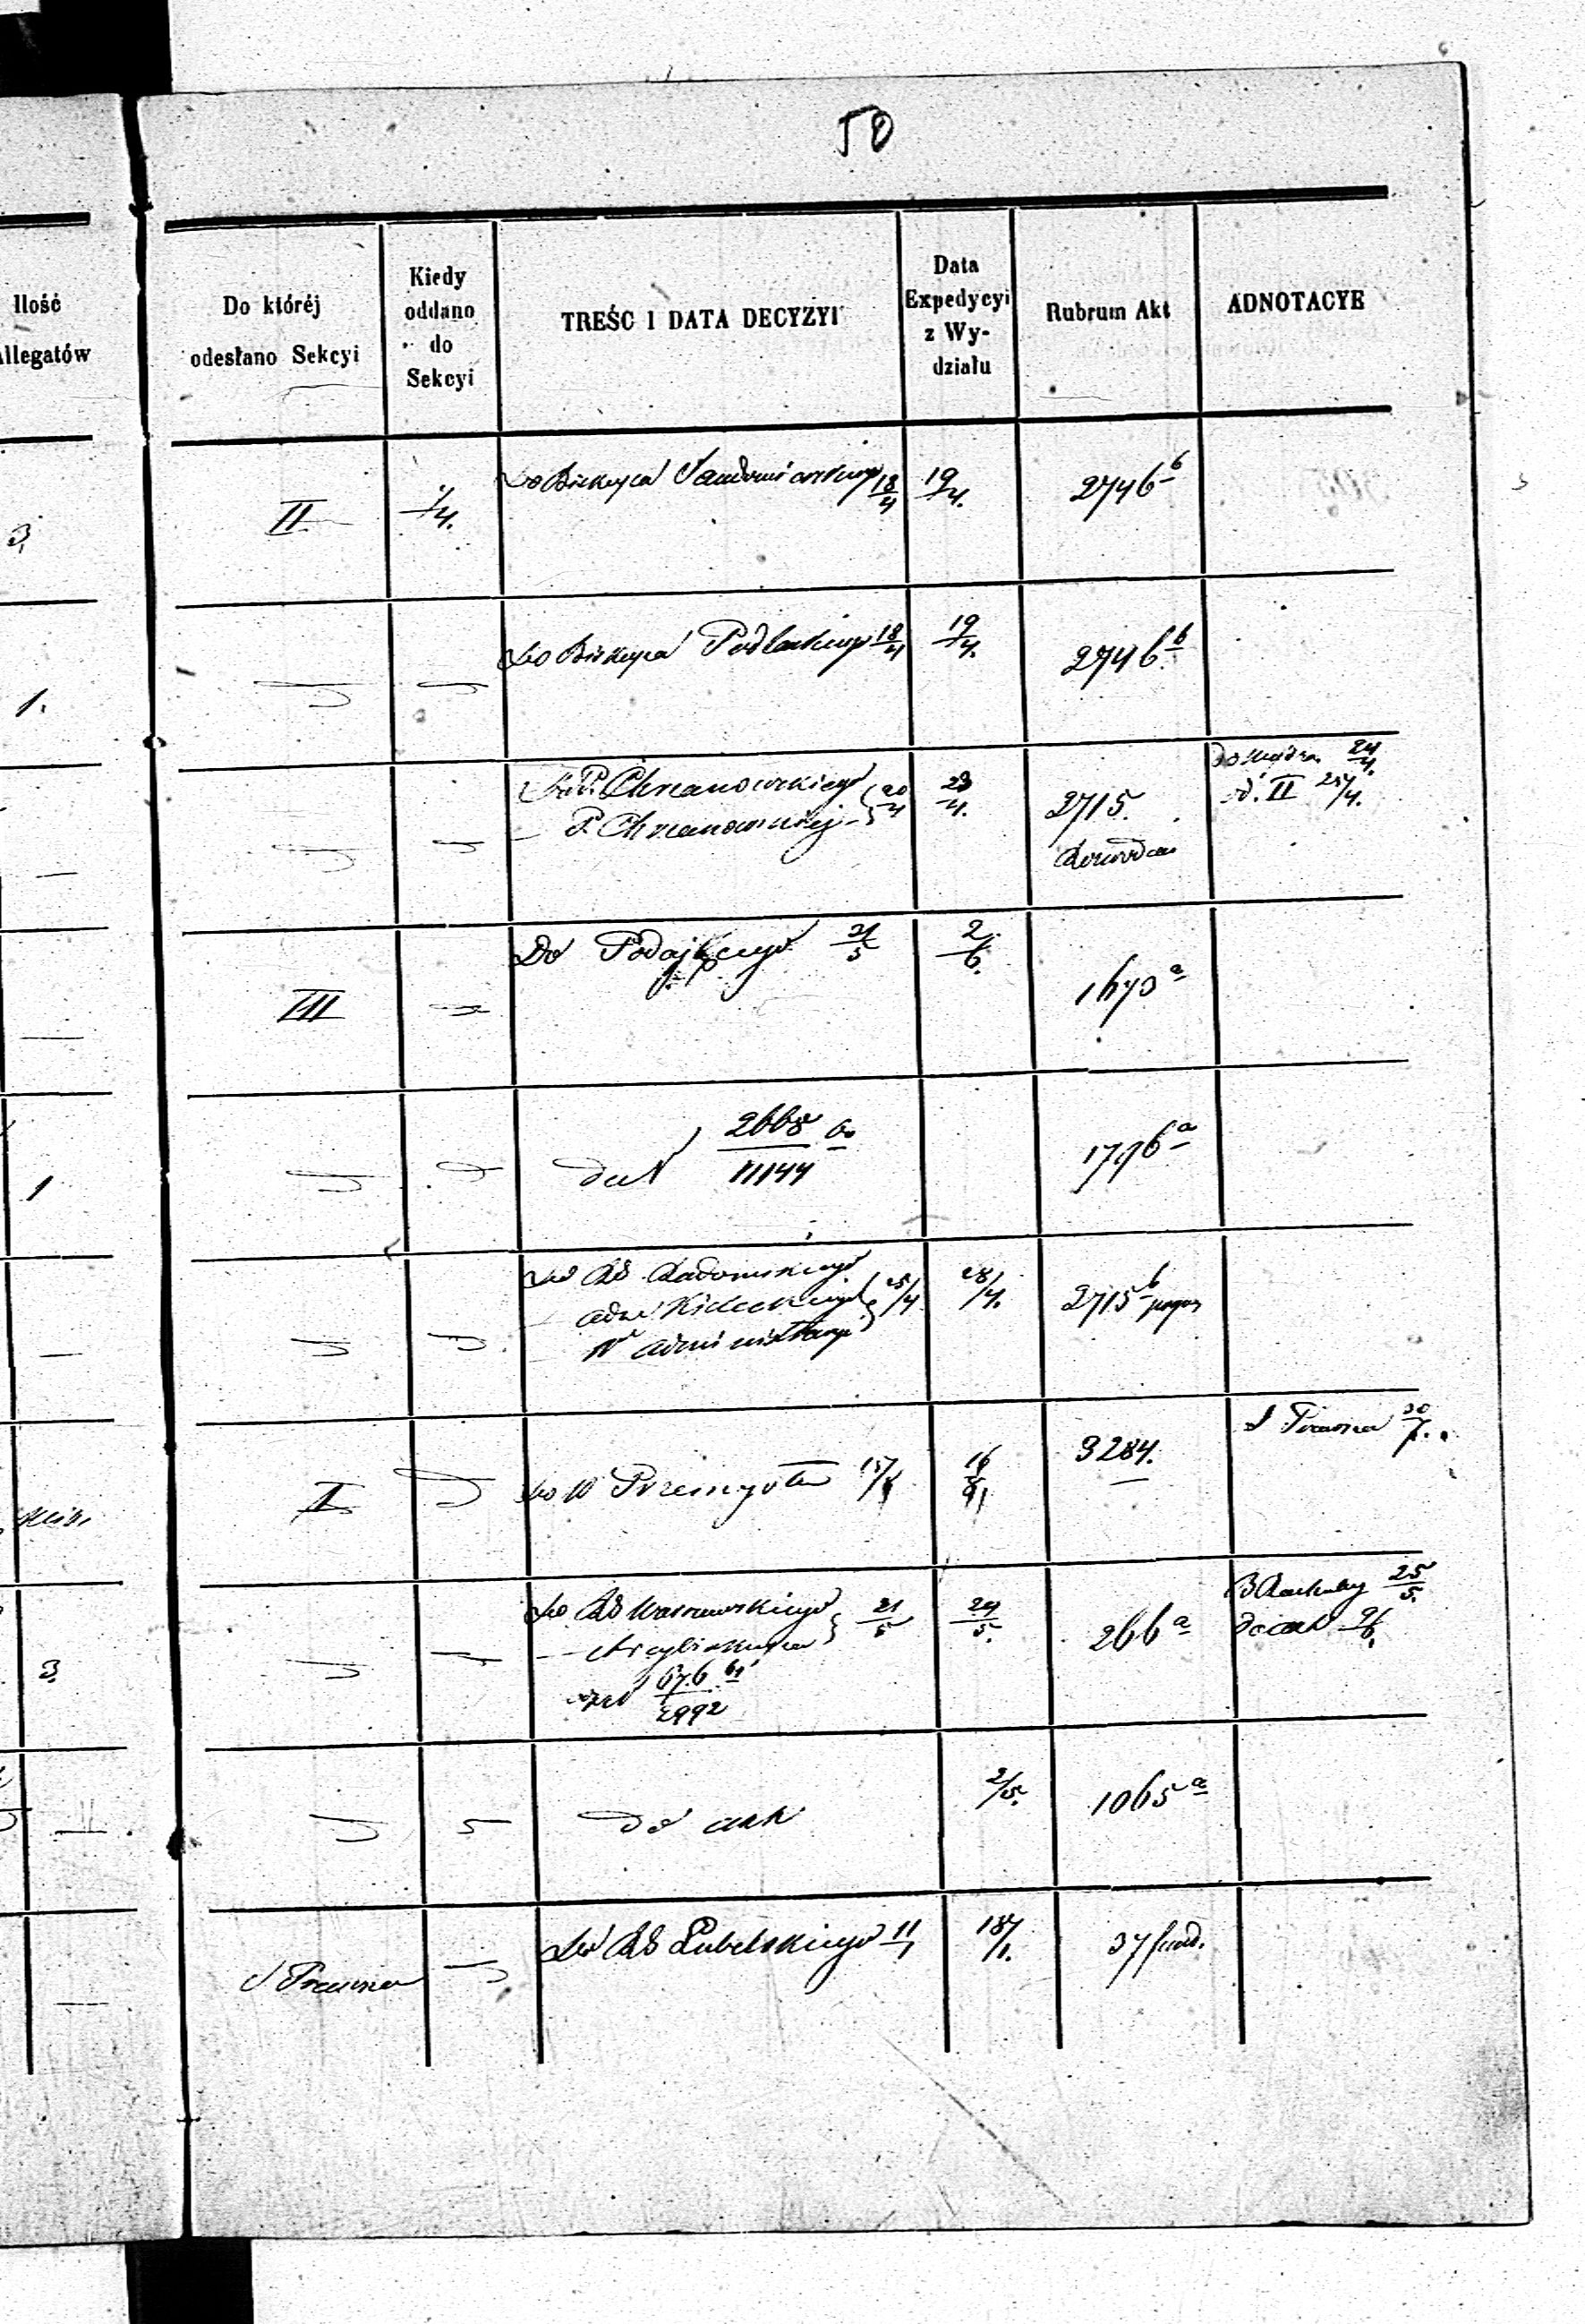 50
Ilość
Allegatów
Do któréj
odesłano Sekcyi
Kiedy
oddano
do
Sekcyi
TREŚC I DATA DECYZYI
Data
Expedycyi
z Wy-
działu
Rubrum Akt
ADNOTACYE
3,
II
1/4.
Do Biskupa Sandomierskiego 18/4
19/4.
2746 b
1.
Do Biskupa Podlaskiego 18/4
19/4.
2746 b
Do P. Chrzanowskiego
P. Chrzanowskiej 20/4
23/4.
2715.
24/4.
II 25/4.
III
Do Podającego 31/5
2/6.
1673 a
1
2668
11144
1796 a
Do RG Radomskiego
Administracyi
25/4
28/4.
2715 b
I
Do W Przemysłu 15/8
16/8
3284.
S Prawna 30/7.
3.
Do RG Warszawskiego
Arcybiskupa
21/5
676
2992
24/5.
266 a
B Rachuby 25/5.
do akt
do akt
2/5.
1065 a
S Prawna
Do RG Lubelskiego 11/1
18/1.
37 fund.